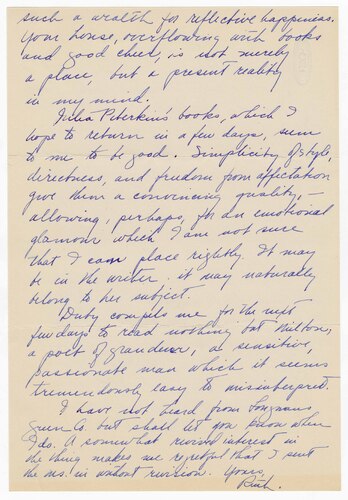 such a wealth for reflective happiness.
Your house, overflowing with books
and good cheer, is not merely
a place, but a present reality
in my mind.
Julia Peterkin's books, which I
hope to return in a few days, seem
to me to be good. Simplicity of style,
directness, and freedom from affectation
give them a convincing quality, –
allowing, perhaps, for an emotional
glamour which I am not sure
that I can place rightly. It may
be in the writer. it may naturally
belong to her subject.
Duty compels me for the next
few days to read nothing but Milton,
a poet of grandeur, a sensitive,
passionate man which it seems
tremendously easy to misinterpret.
I have not heard from Longmans
Green Co. but shall let you know when
I do. A somewhat revived interest in
the thing makes me regretful that I sent
the ms. in without revision. Yours,